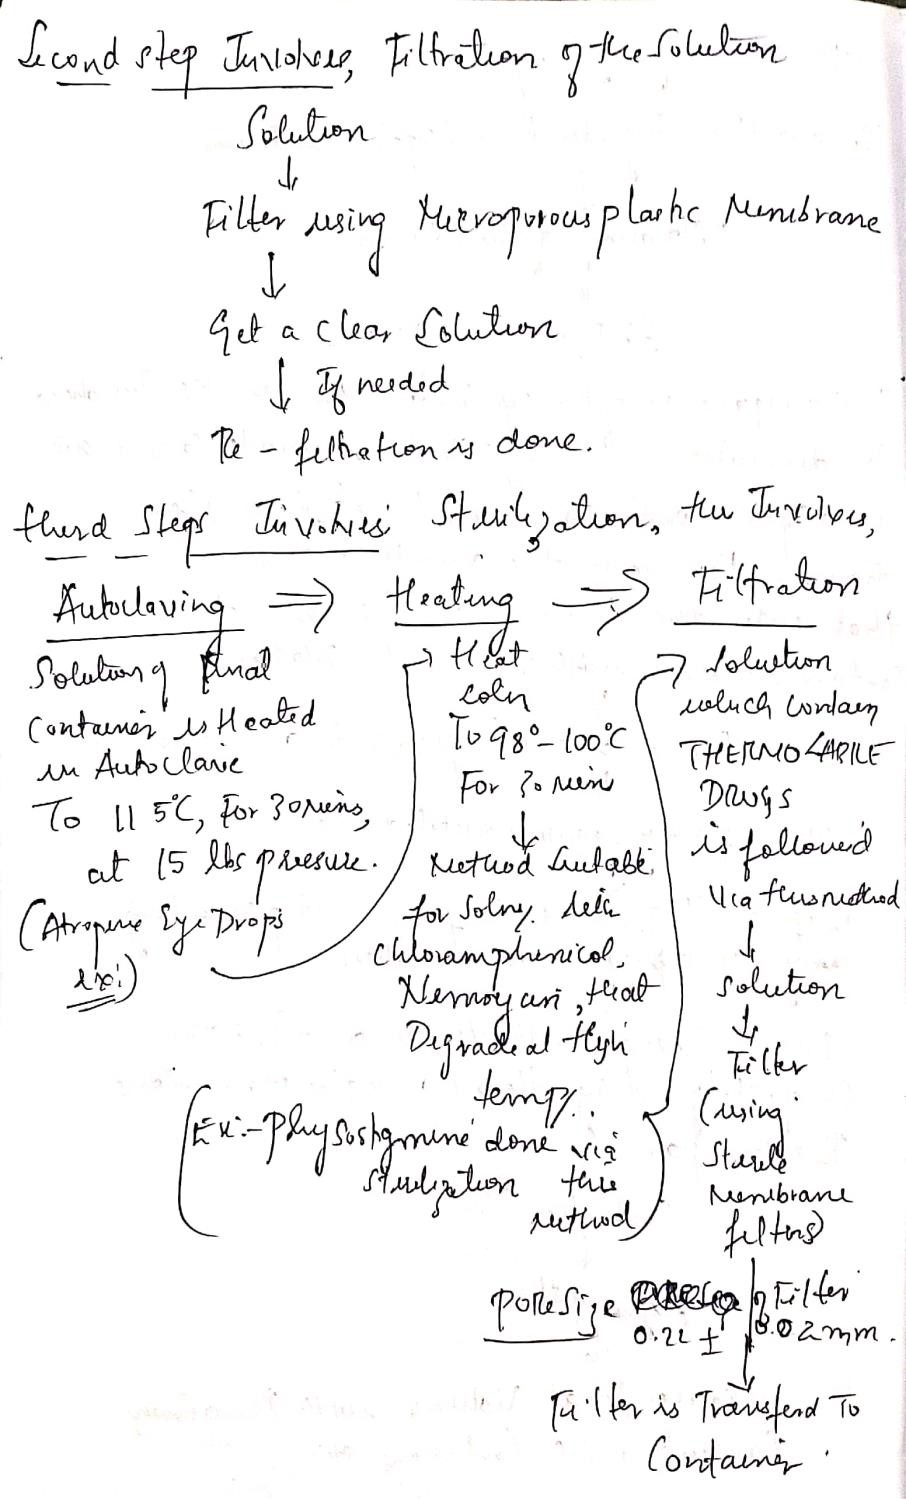 Second step Involves, Filtration of the Solution
Solution
↓
Filter using Microporous plastic Membrane
↓
Get a clear Solution
↓ If needed
Re - filtration is done.
third Steps Involves Sterilization, this Involves,
Autoclaving ⇒ Heating ⇒ Filtration
Solution of final
Container is Heated
in Autoclave
To 115°C, For 30 mins,
at 15 lbs pressure.
(Atropine Eye Drops
ex:)
Heat
soln
To 98°-100°C
For 30 min
↓
Method Suitable
for solns.
Chloramphenicol,
that
Degrade at High
temp.
(Ex:- Physostigmine done via
sterilization this
method)
Solution
which contain
THERMOLABILE
DRUGS
is followed
Via this method
↓
Solution
↓
Filter
(using
Sterile
Membrane
filters)
Pore Size of Filter
0.22 ± 0.02mm.
Filter is Transferd To
Container.